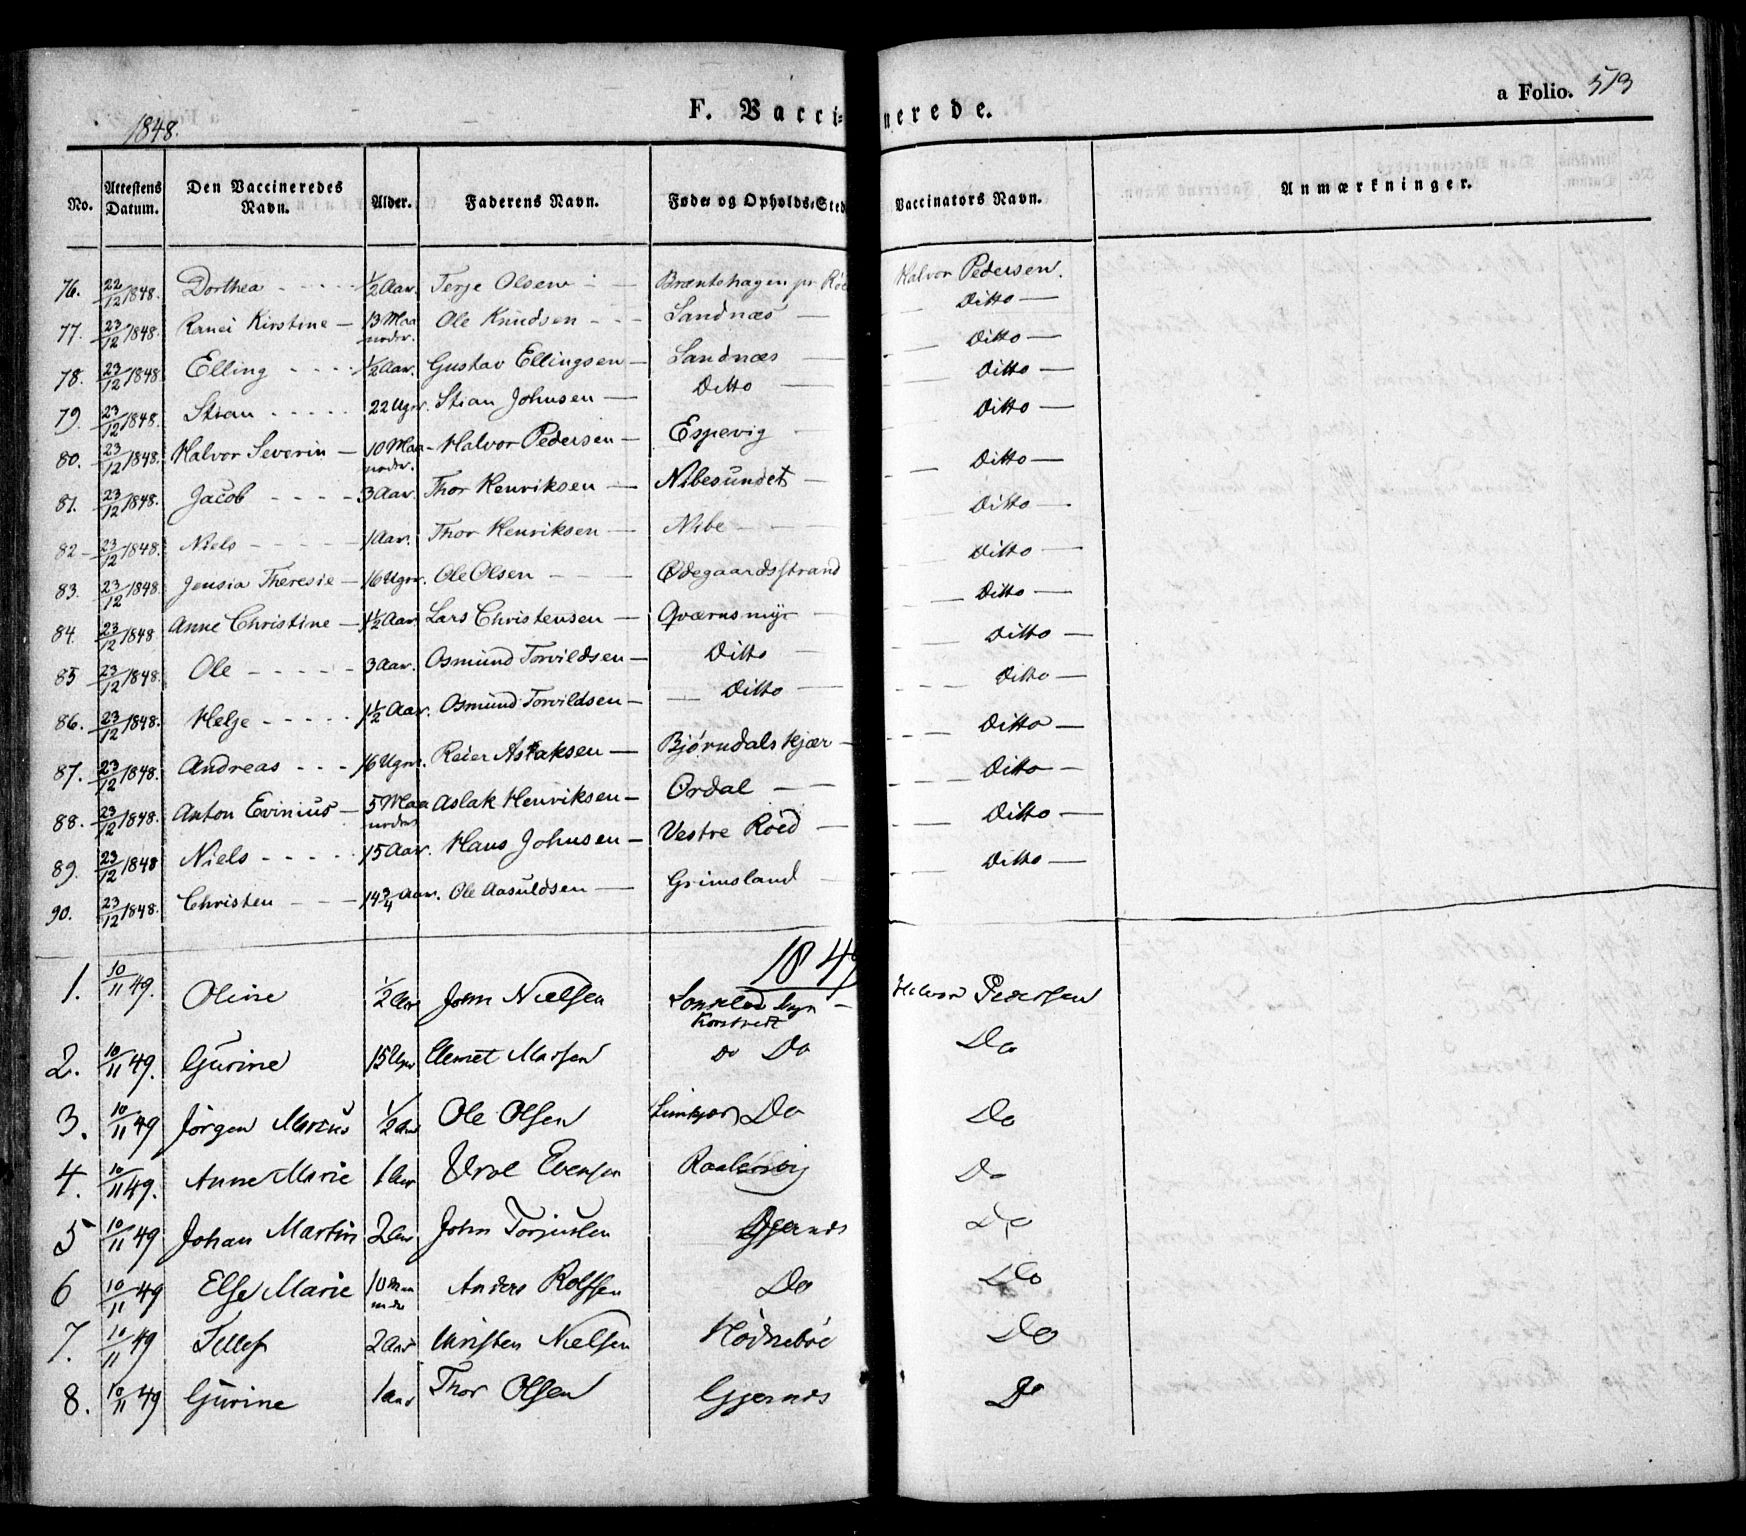 F. Vaccinerede.
a Folio. 513
1848.
No. Attestens Datum. Den Vaccineredes Navn. Alder. Faderens Navn. Føde og Opholds-Sted Vaccinators Navn. Anmærkninger.
76. 22/12 1848. Dorthea - - - - 1/2 Aar. Terje Olsen - — Bræntehagen pr Halvor Pedersen.
77. 23/12 1848. Kirstine — 13 Maa neder. Ole Knudsen - - - Landnæs — — Ditto —
78. 23/12 1848 Elling - - - - 1/2 Aar. Gustav Ellingsen — Landnæs — — Ditto —
79. 23/12 1848. Stian - - - - - 22 Uger. Stian Johnsen — Ditto — — Ditto —
80. 23/12 1848. Halvor Severin — 10 Maa- neder. Halvor Pedersen — Espevig — — Ditto —
81. 23/12 1848. Jacob - - - - - 3 Aar. Thor Henriksen — Nibesundet — — Ditto —
82 - 23/12 1848. Niels - - - - — 1 Aar. Thor Henriksen — Nibe - - — — Ditto —
83. 23/12 1848. Jensia Theresie — 16 Uger. Ole Olsen - - — Ødegaardsstrand — Ditto —
84. 23/12 1848 Anne Christine — 1 1/2 Aar Lars Christensen — Qværnsmyr — — Ditto —
85 23/12 1848. Ole - - - - - 3 Aar. Osmund Torvildsen — Ditto — — Ditto —
86. 23/12 1848. Helje - - - - - 1 1/2 Aar. Osmund Torvildsen — — Ditto — — Ditto —
87. 23/12 1848. Andreas - - - 16 Uger. Reier Aslaksen — Bjørndalskjær - — Ditto —
88. 23/12 1848. Anton Evinius — 5 Maa neder Aslak Henriksen — Ørdal — — — Ditto —
89. 23/12 1848 Niels - - - - - 15 Aar. Hans Johnsen — Vestre Røed — — Ditto —
90. 23/12 1848. Christen - - — 14 3/4 Aar. Ole Aasuldsen — Grimsland — — Ditto —
1849
1. 10/11 49. Oline 1/2 Aar John Nielsen Halvor Pedersen
2. 10/11 49. Gurine 15 Uger Clemet Do Do Do
3. 10/11 49 Jørgen Marcus 1/2 Aar Ole Olsen Do Do
4. 10/11 49. Anne Marie 1 Aar Evensen Do
5 10/11 49 Johan Martin 2 Aar John Torjusen Gjernes Do
6 10/11 49 Else Marie 10 Maa neder Anders Rolfsen Do Do
7. 10/11 49 Tellef 2 Aar Christen Nielsen Hødnebøe Do
8. 10/11 49 Gurine 1 Aar Thor Olsen Gjernes Do